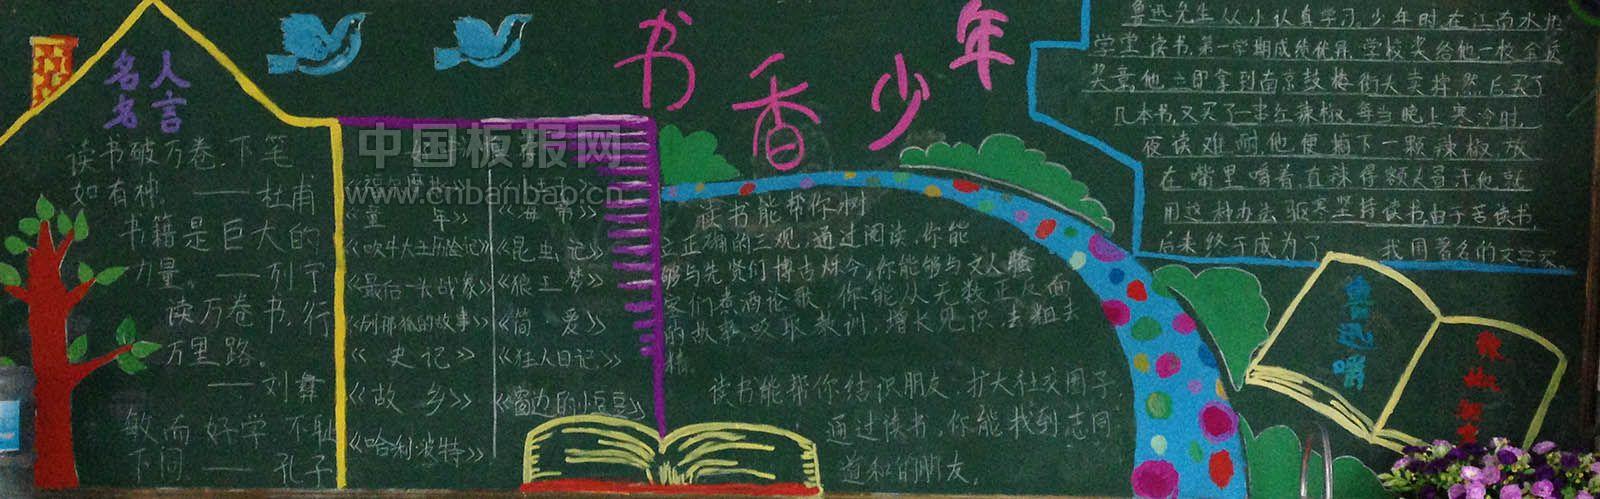 书香少年
名人
名言
读书破万卷，下笔
如有神。——杜甫
书籍是巨大的
力量。——列宁
读万卷书，行
万里路。
——刘彝
敏而好学 不耻
下问。——孔子
中国板报网
www.cnbanbao.cn
《童年》
《吹牛大王历险记》
《最后一头战象》
《列那狐的故事》
《史记》
《故乡》
《哈利·波特》
《昆虫记》
《狼王梦》
《简爱》
《狂人日记》
《窗边的小豆豆》
读书能帮你树
立正确的三观，通过阅读，你能
够与先贤们博古烁今，你能够与文人骚
客们煮酒论歌，你能从无数正反面
的故事，吸取教训，增长见识，去粗去
精。
读书能帮你结识朋友，扩大社交圈子
通过读书，你能找到志同
道和的朋友。
鲁迅先生从小认真学习。少年时，在江南水师
学堂读书，第一学期成绩优异，学校奖给他一枚金质
奖章。他立即拿到南京鼓楼街头卖掉，然后买了
几本书，又买了一串红辣椒。每当晚上寒冷时，
夜读难耐，他便摘下一颗辣椒，放
在嘴里嚼着，直辣得额头冒汗。他就
用这种办法驱寒坚持读书。由于苦读书，
后来终于成为了 我国著名的文学家。
鲁迅嚼
辣椒驱寒